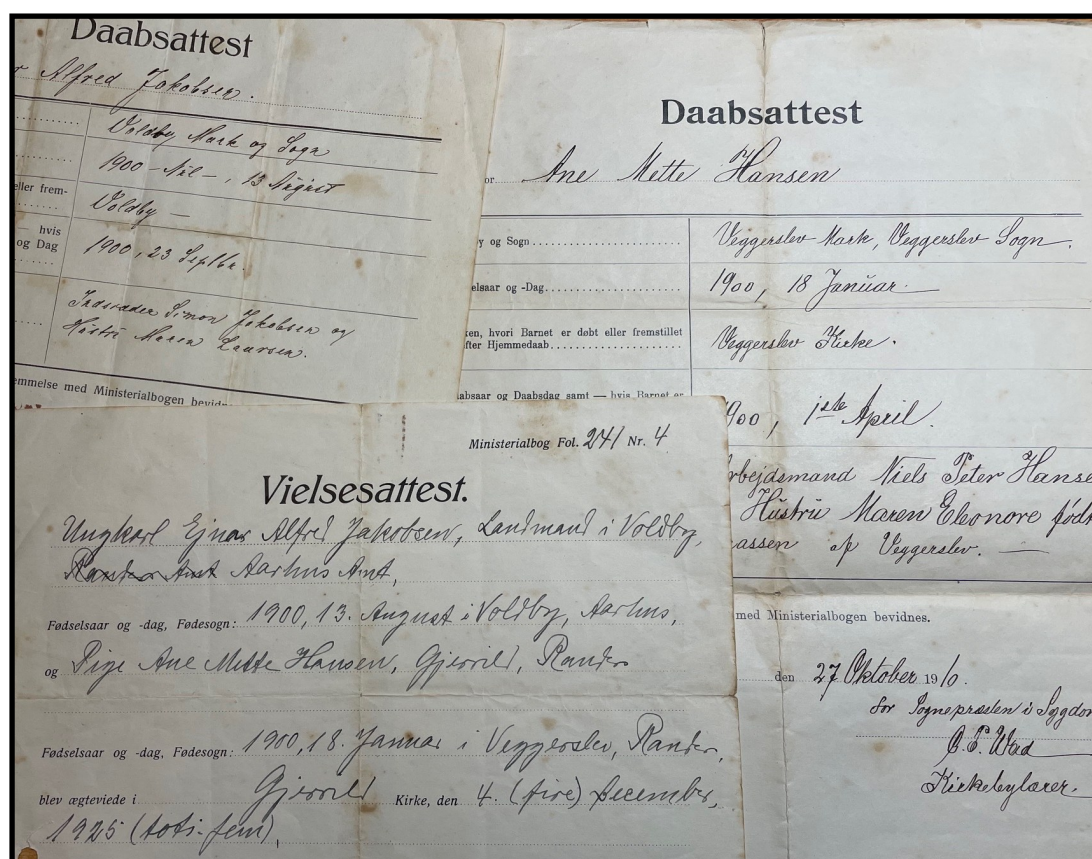 Daabsattest
Alfred Jokobsen.
Voldby Mark og Sogn
1900 - Nul -, 13 August
eller frem-
Voldby —
— hvis
og Dag
1900, 23 Septbr.
Indsidder Simon Jokobsen og
Hustru Maren Laursen.
emmelse med Ministerialbogen bevidn
Daabsattest
or Ane Mette Hansen
y og Sogn
Veggerslev Mark, Veggerslev Sogn.
elsaar og -Dag
1900, 18 Januar.
ken, hvori Barnet er døbt eller fremstillet
fter Hjemmedaab
Veggerslev Kirke.
absaar og Daabsdag samt — hvis Barnet er
900, 1ste April.
rbejdsmand Niels Peter Hanse
Hustru Maren Eleonore født
assen af Veggerslev. —
med Ministerialbogen bevidnes.
den 27 Oktober 1910.
for Sognepræsten i Sygdom
Wad
Kirkebylærer.
Ministerialbog Fol. 241 Nr. 4
Vielsesattest.
Ungkarl Ejnar Alfred Jakobsen, Landmand i Voldby,
Randers Amt Aarhus Amt,
Fødselsaar og -dag, Fødesogn: 1900, 13. August i Voldby, Aarhus,
og Pige Ane Mette Hansen, Gjerrild, Randers
Fødselsaar og -dag, Fødesogn: 1900, 18. Januar i Veggerslev, Randers,
blev ægteviede i Gjerrild Kirke, den 4. (fire) December,
1925 (toti-fem),